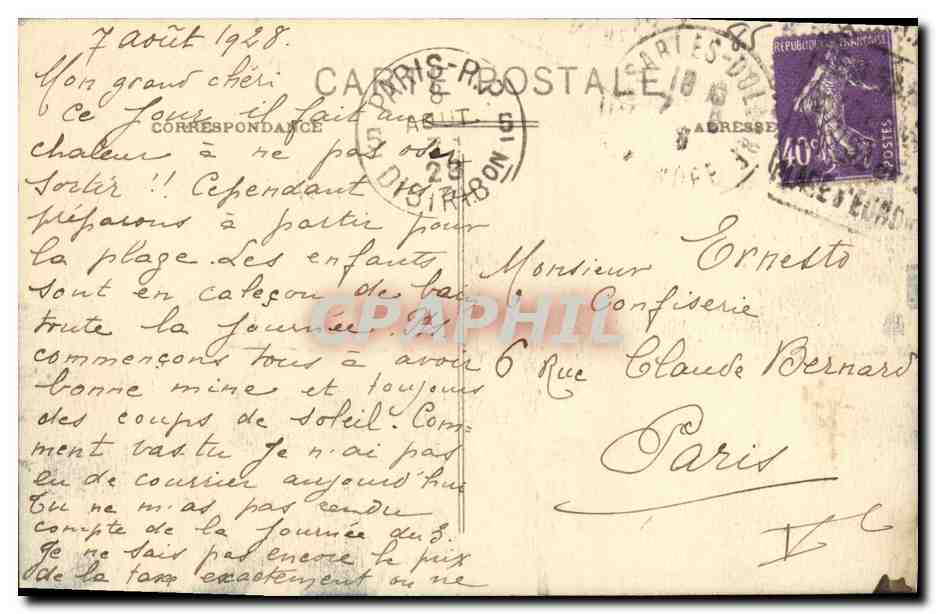 7 août 1928.
CARTE POSTALE
CORRESPONDANCE
ADRESSE
Mon grand chéri
Ce jour il fait une
chaleur à ne pas oser
sortir !! Cependant
préparons à partir pour
la plage. Les enfants
sont en caleçon de bain
toute la journée.
commençons tous à avoir
bonne mine et toujours
des coups de soleil. Com=
ment vas.tu Je n'ai pas
eu de courrier aujourd'hui
Tu ne m'as pas rendu
compte de la journée du 3.
Je ne sais pas encore le prix
de la taxe exactement on ne
Monsieur Ernesto
Confiserie
6 Rue Claude Bernard
Paris
Ve
PARIS-R.P.
8
AOUT
28
5 5
DISTRIBON
REPUBLIQUE FRANCAISE
40c
POSTES
CPAPHIL